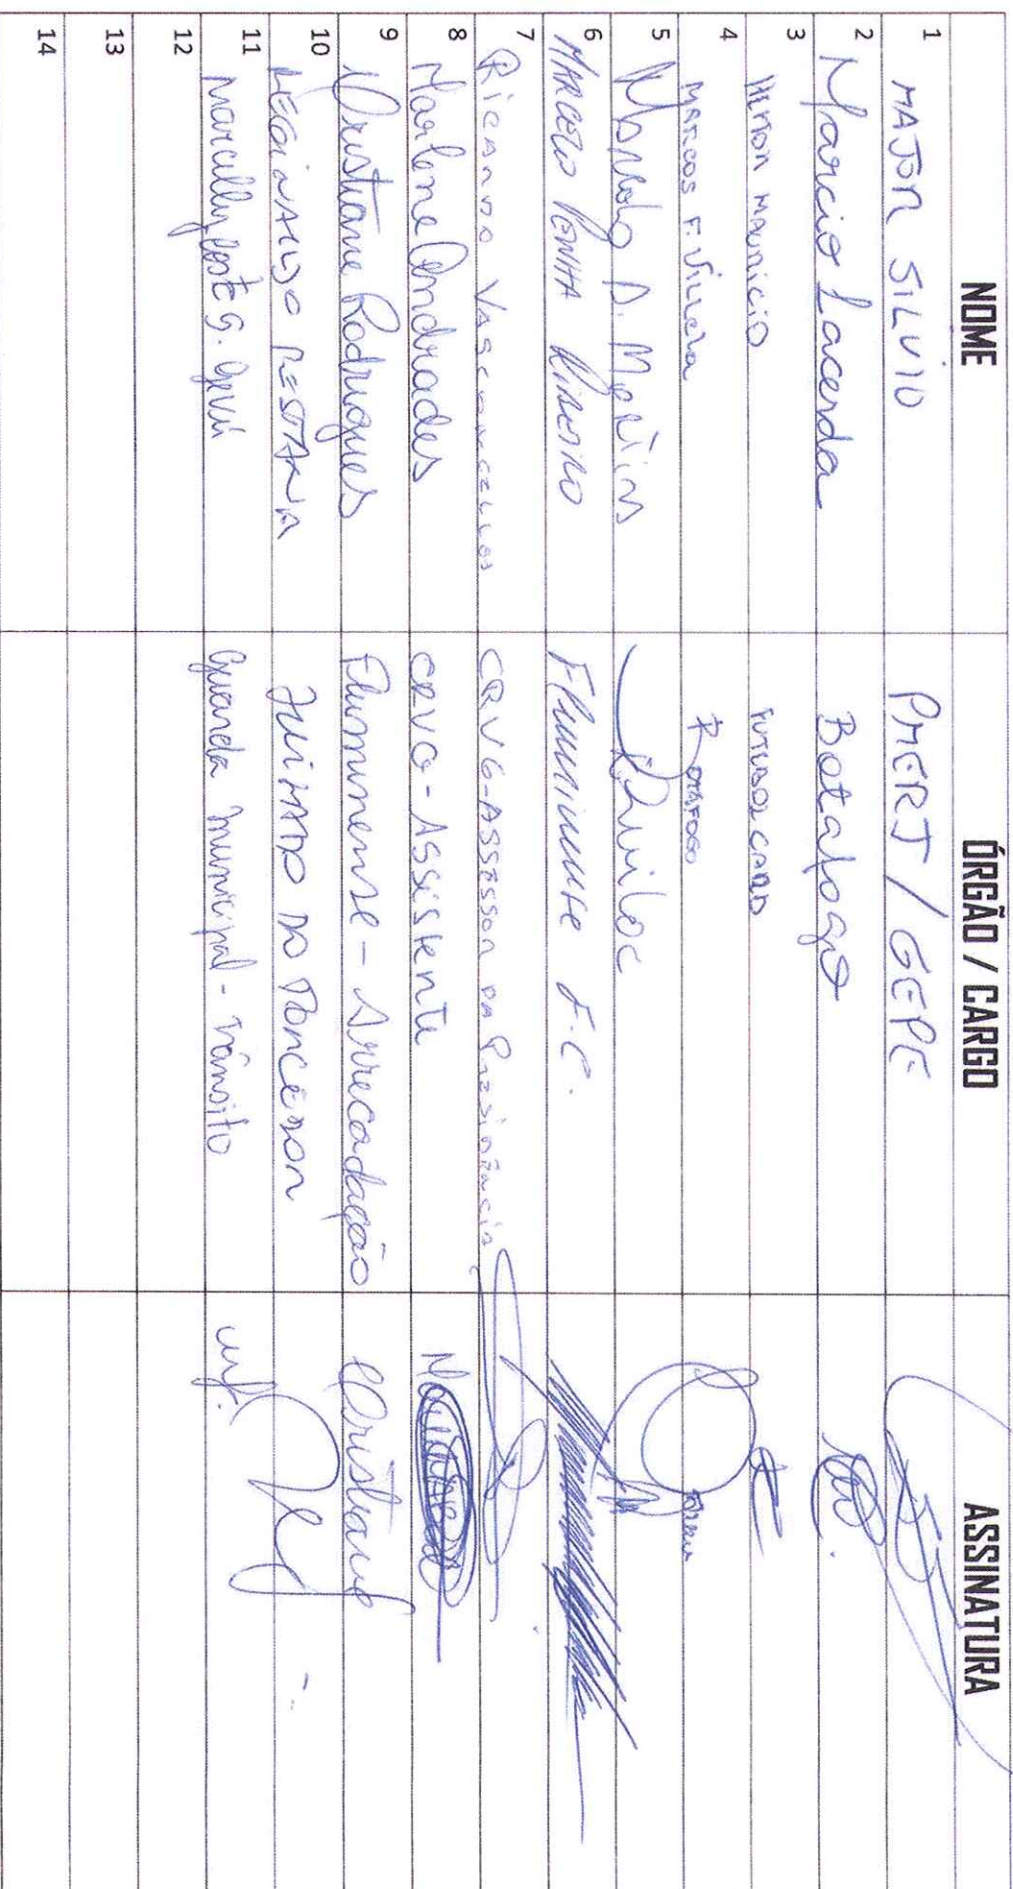 NOME ÓRGÃO / CARGO ASSINATURA
1 MAJOR SILVIO PMERJ / GEPE
2 Marcio Lacerda Botafogo
3 MAURICIO FUTEBOLCARD
4 MARCOS F. Villela BOTAFOGO
5 D. Martins
6 MARCELO PENHA RIBEIRO Fluminense F.C.
7 Ricardo Vasconcellos CRVG-ASSESSOR DA Presidência
8 Marlene Andrades CRVG-Assistente
9 Cristiane Rodrigues Fluminense - Arrecadação Cristiane
10 REGINALDO PESTANA JUIZADO DO TORCEDOR
11 Marcelly G. Guarda Municipal - Trânsito
12
13
14